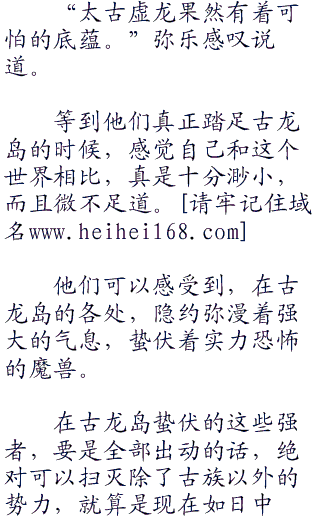 “太古虚龙果然有着可
怕的底蕴。”弥乐感叹说
道。
等到他们真正踏足古龙
岛的时候，感觉自己和这个
世界相比，真是十分渺小，
而且微不足道。[请牢记住域
名www.heihei168.com]
他们可以感受到，在古
龙岛的各处，隐约弥漫着强
大的气息，蛰伏着实力恐怖
的魔兽。
在古龙岛蛰伏的这些强
者，要是全部出动的话，绝
对可以扫灭除了古族以外的
势力，就算是现在如日中